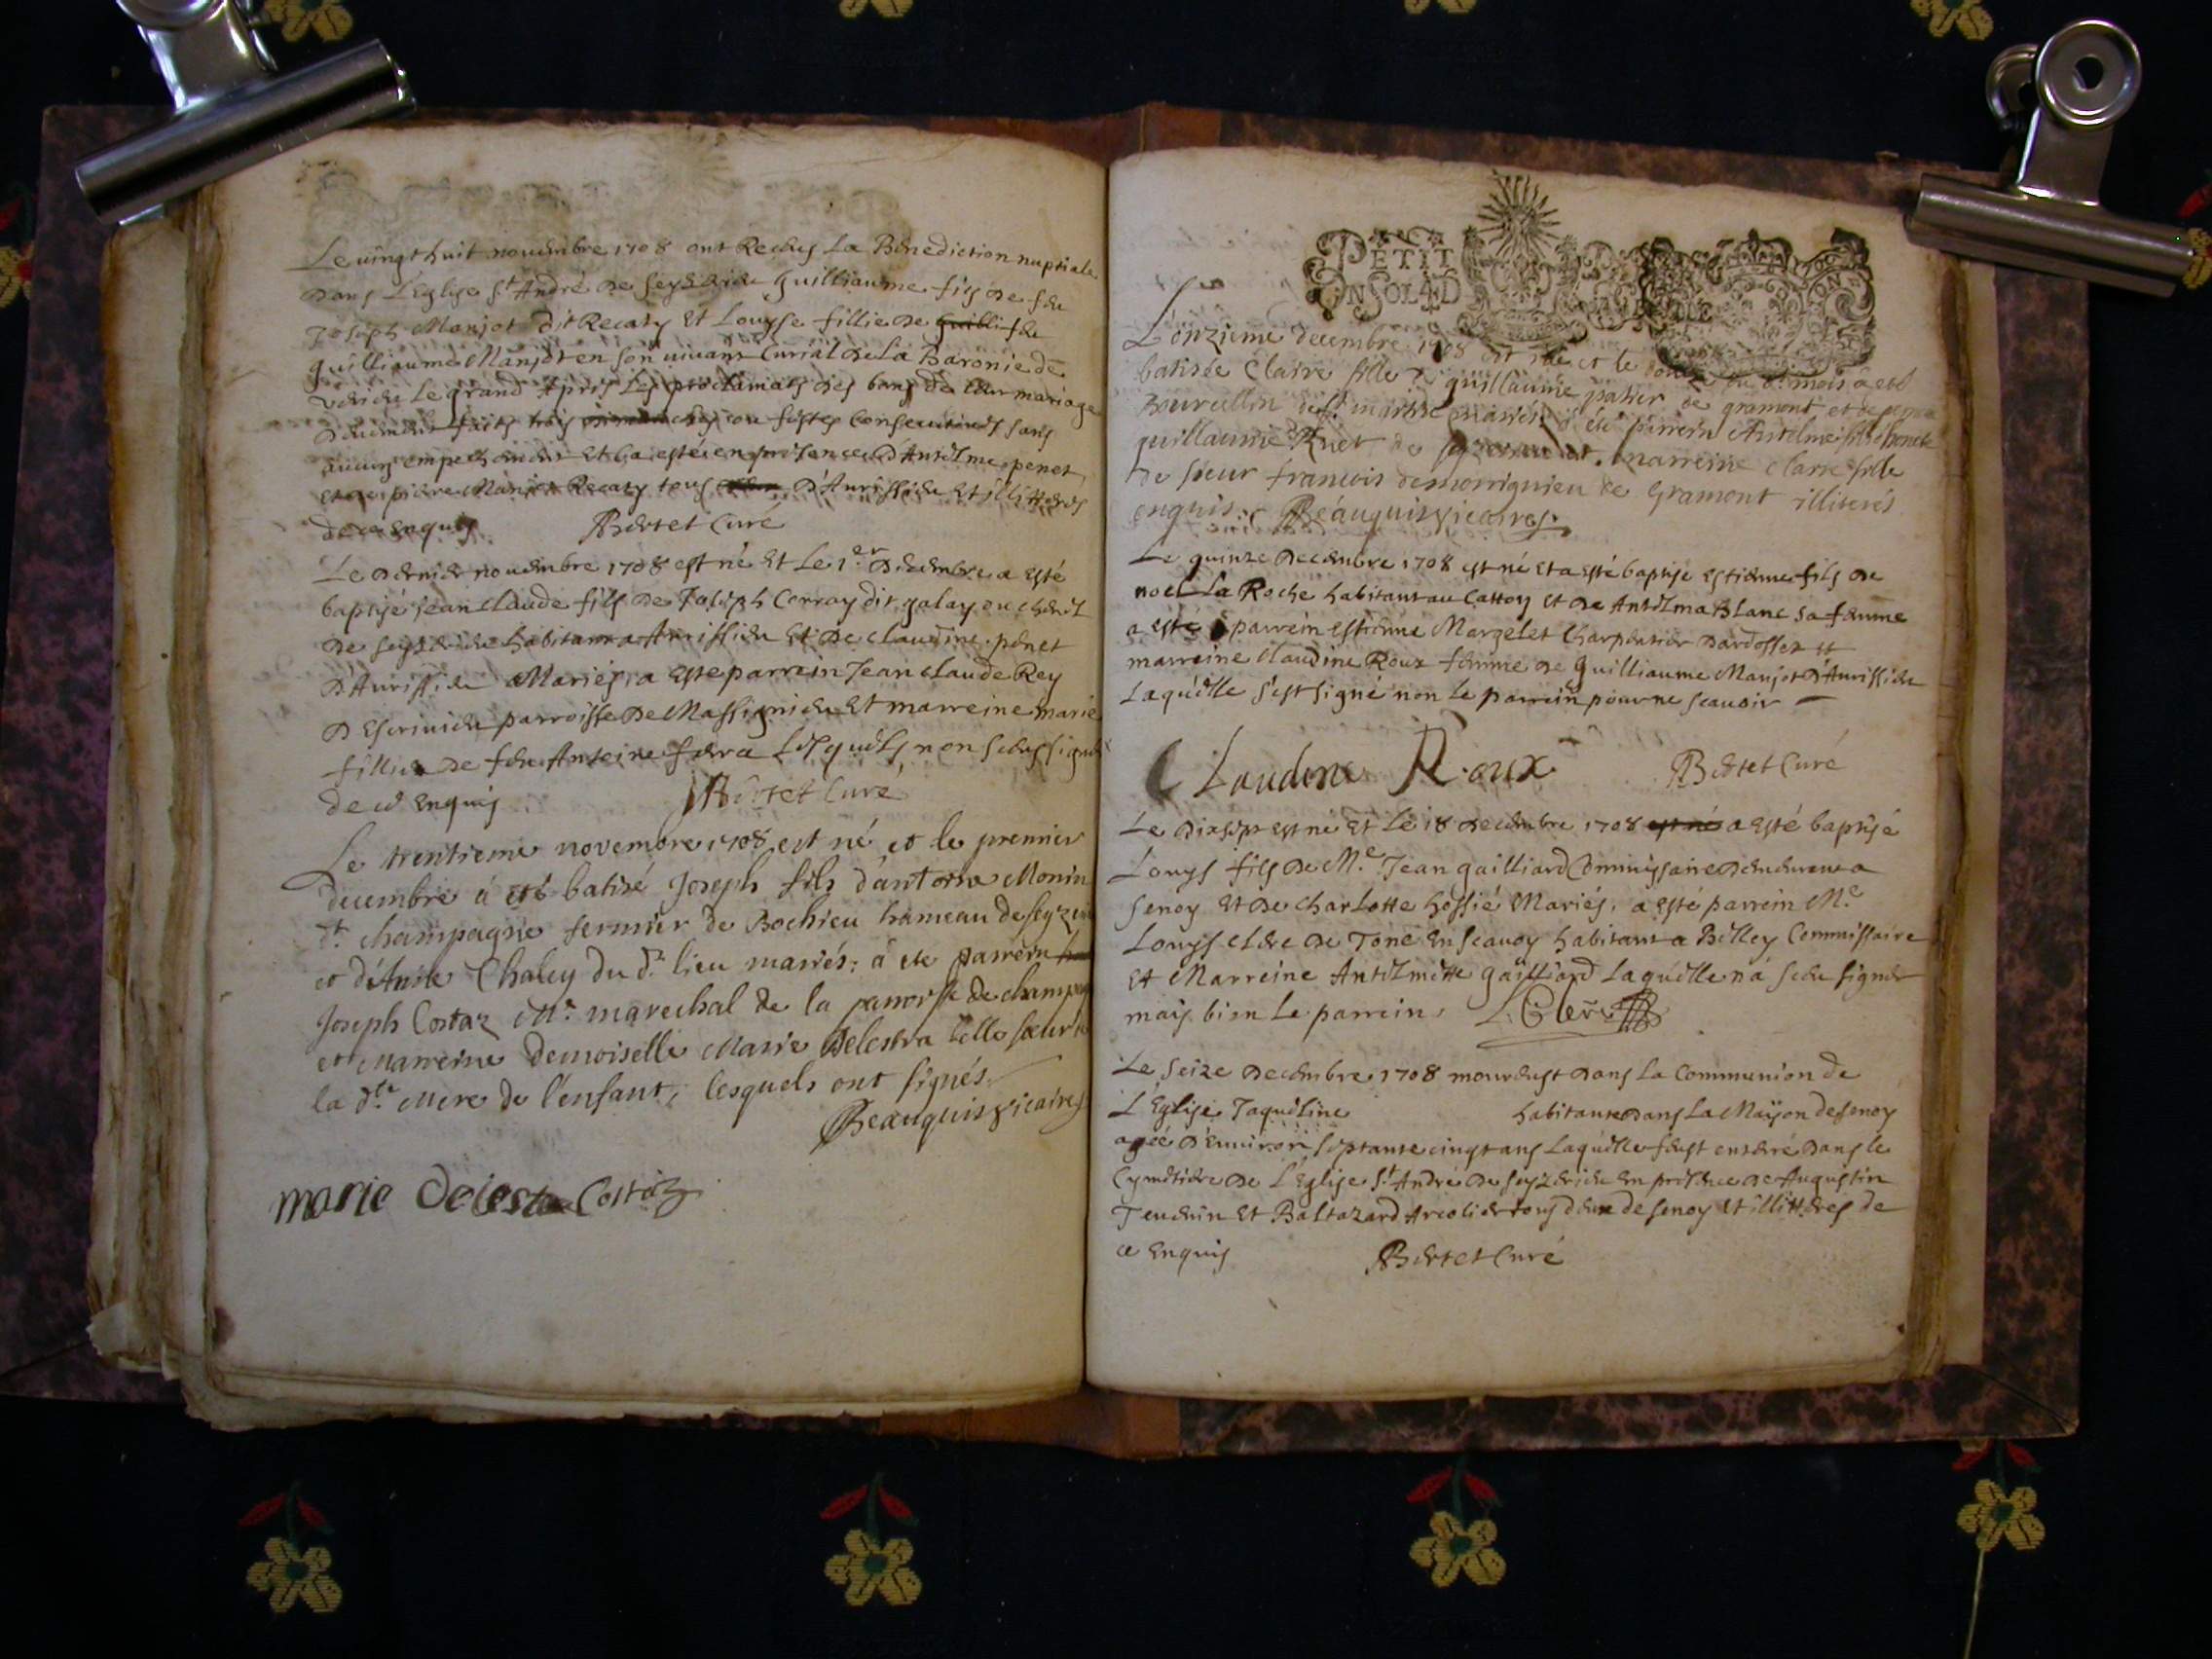 Le vingt huit novembre 1708 ont Recduy La Bénédiction nuptiale
dans L'Eglise St André de Seyzerieu Guilliaume fils de feu
Joseph Manjot dit Recaty Et Louyse fillie de feu
guilliaume Manjot en son vivant Curial de La Baronie de
le grand Après Les proclimats des bans de leur mariage
faits trois ou festes Consecutives sans
aucung empechement Et ca esté en présence D'Antelme penet
et de pierre Manjot Recaty tous D'Aurissieu Et illitteres
de ce enquis Bertet Curé
Le dernier novembre 1708 est né Et Le 1.er Décembre a Esté
baptisé jean claude fils de Joseph Corray dit galay
de Seyzerieu habitant a Aurissieu Et de claudine penet
D'Aurissieu Mariés, a Esté parrein Jean claude Rey
D'Escrivieu parroisse de Massignieu Et marreine marie
fillie de feu Antoine fera Lesquels non sceu signer
de ce Enquis Bertet Curé
Le trentieme novembre 1708 est né et le premier
decembre á eté batisé Joseph fils d'antoine Monin
dt. champagne fermier de Bochieu hameau de Seyzerieu
et d'Anne Chaley du d.t lieu mariés: á ete parrein
Joseph Costaz M.re marechal de la parroisse de champagne
et Marreine demoiselle Marie Delestra belle sœur de
la d.te mere de l'enfant, lesquels ont signés.
Beauquis vicaire
marie Delestra Costaz
PETIT
UN SOL 4 D
L'onzieme decembre 1708 est née et le douze du d. mois a eté
batisée Claire fille de guillaume patier de gramont et de
Bourcellin de St martin mariés á été parrein Antelme fils
guillaume Ruet de marreine Claire fille
de sieur francois demorrignieu de Gramont illiterés
enquis. Beauquis vicaire
Le quinze Decembre 1708 est né Et a Esté baptisé Estienne fils de
noel La Roche habitant au Cattoy Et de Antelma Blanc sa femme
a esté parrein Estienne Margelet Charpentier Dardosset et
marreine Claudine Roux femme de Guilliaume Manjot D'Aurissieu
Laquelle s'est signé non le parrein pour ne scavoir
Claudine Roux Bertet Curé
Le Dixsept est né Et Le 18 decembre 1708 est né a Esté baptisé
Louys fils de M.e Jean gailliard Commissaire demeurant a
Senoy Et de Charlotte hossié Mariés, a esté parrein M.e
Louys clerc de Tone En Scavoy habitant a Belley Commissaire
Et Marreine Antelmette gailliard Laquelle n'á sceu signer
mais bien Le parrein, L. Clerc
Le Seize Decembre 1708 mourust dans La Communion de
L'Eglise Jaqueline habitante dans La Mayson de Senoy
agée D'environ septante cinq ans Laquelle fust enterré dans le
Cymetiere de L'Eglise St André de Seyzerieu En présence de Augustin
Tenduin Et Baltazard Arcolier tous deux de Senoy Et illitteres de
ce Enquis Bertet Curé